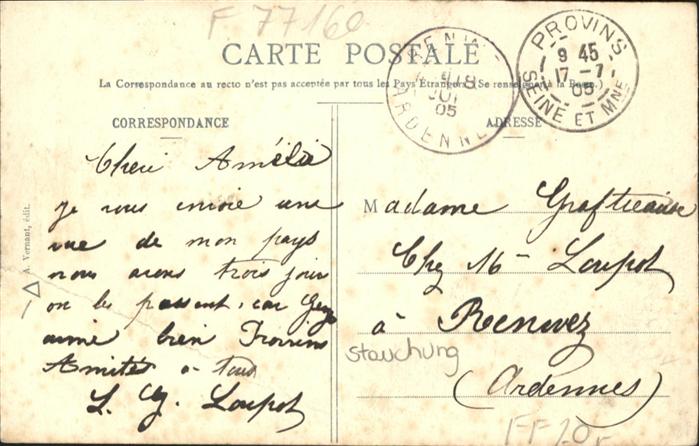 F 77160
CARTE POSTALE
La Correspondance au recto n'est pas acceptée par tous les Pays Étrangers (Se renseigner à la Poste.)
CORRESPONDANCE
ADRESSE
PROVINS
9 45
17 - 7
05
SEINE ET MNE
18
05
ARDENNES
Cheri Amélie
je vous envoie une
vue de mon pays
nous avons trois jours
on les passent, car
aime bien Provins
Amitiés a tous
L. G. Loupot
A. Vernant, édit.
Madame
Chez Mr Loupot
à Renwez
(Ardennes)
stauchung
FF 20